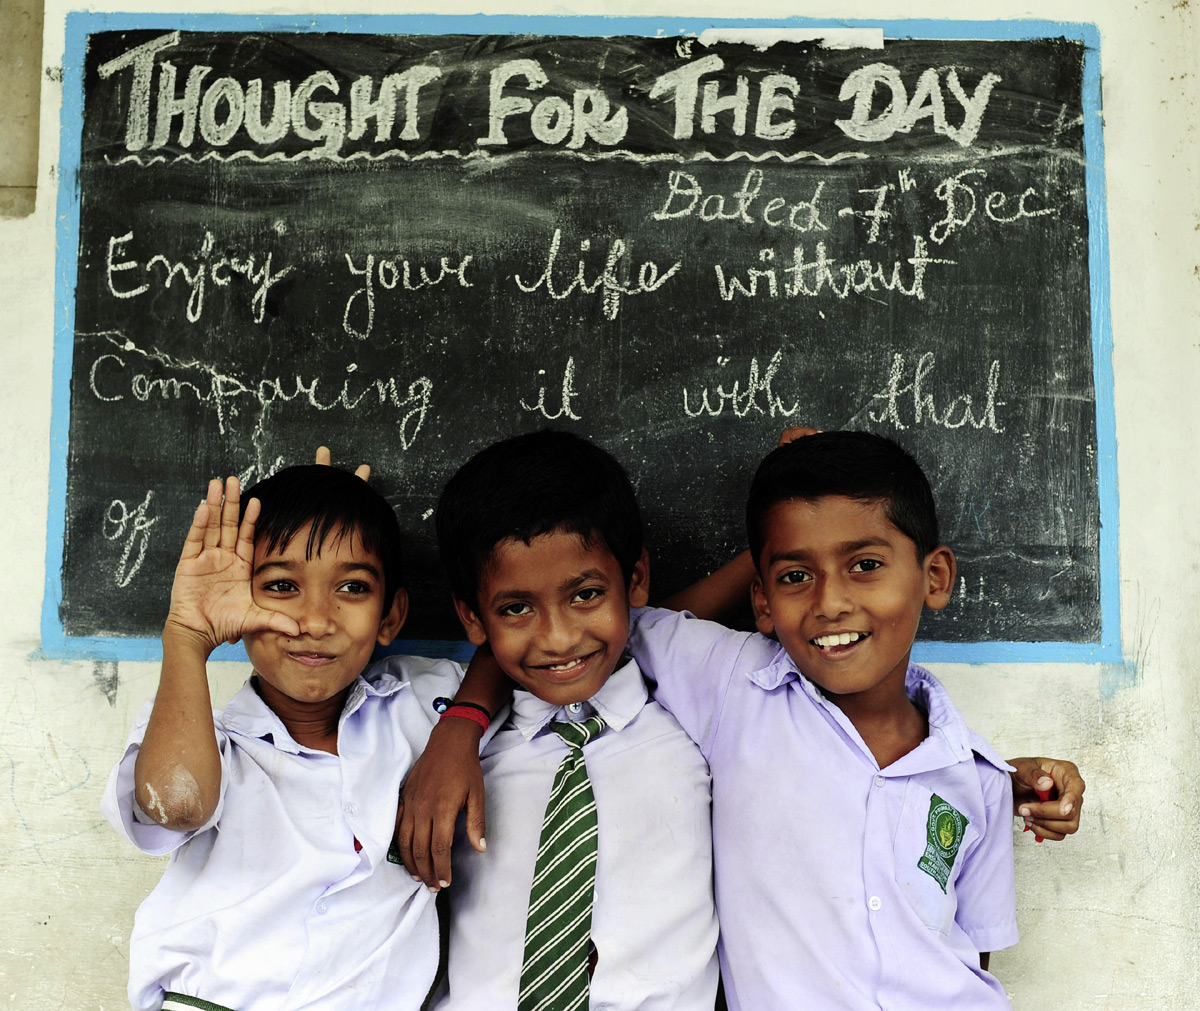 THOUGHT FOR THE DAY
Dated - 7th Dec
Enjoy your life without
Comparing it with that
of